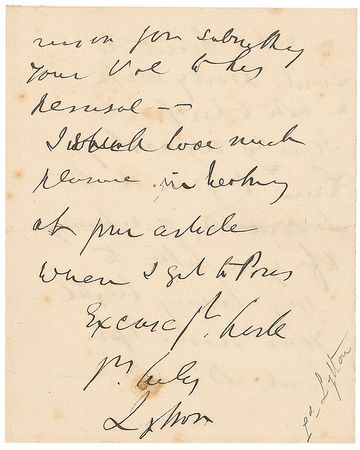 reason for submitting
your Vol to his
perusal —
I shall have much
pleasure in looking
at your article
when I get to Paris
Excuse gt haste
yrs truly
Lytton
Ld Lytton